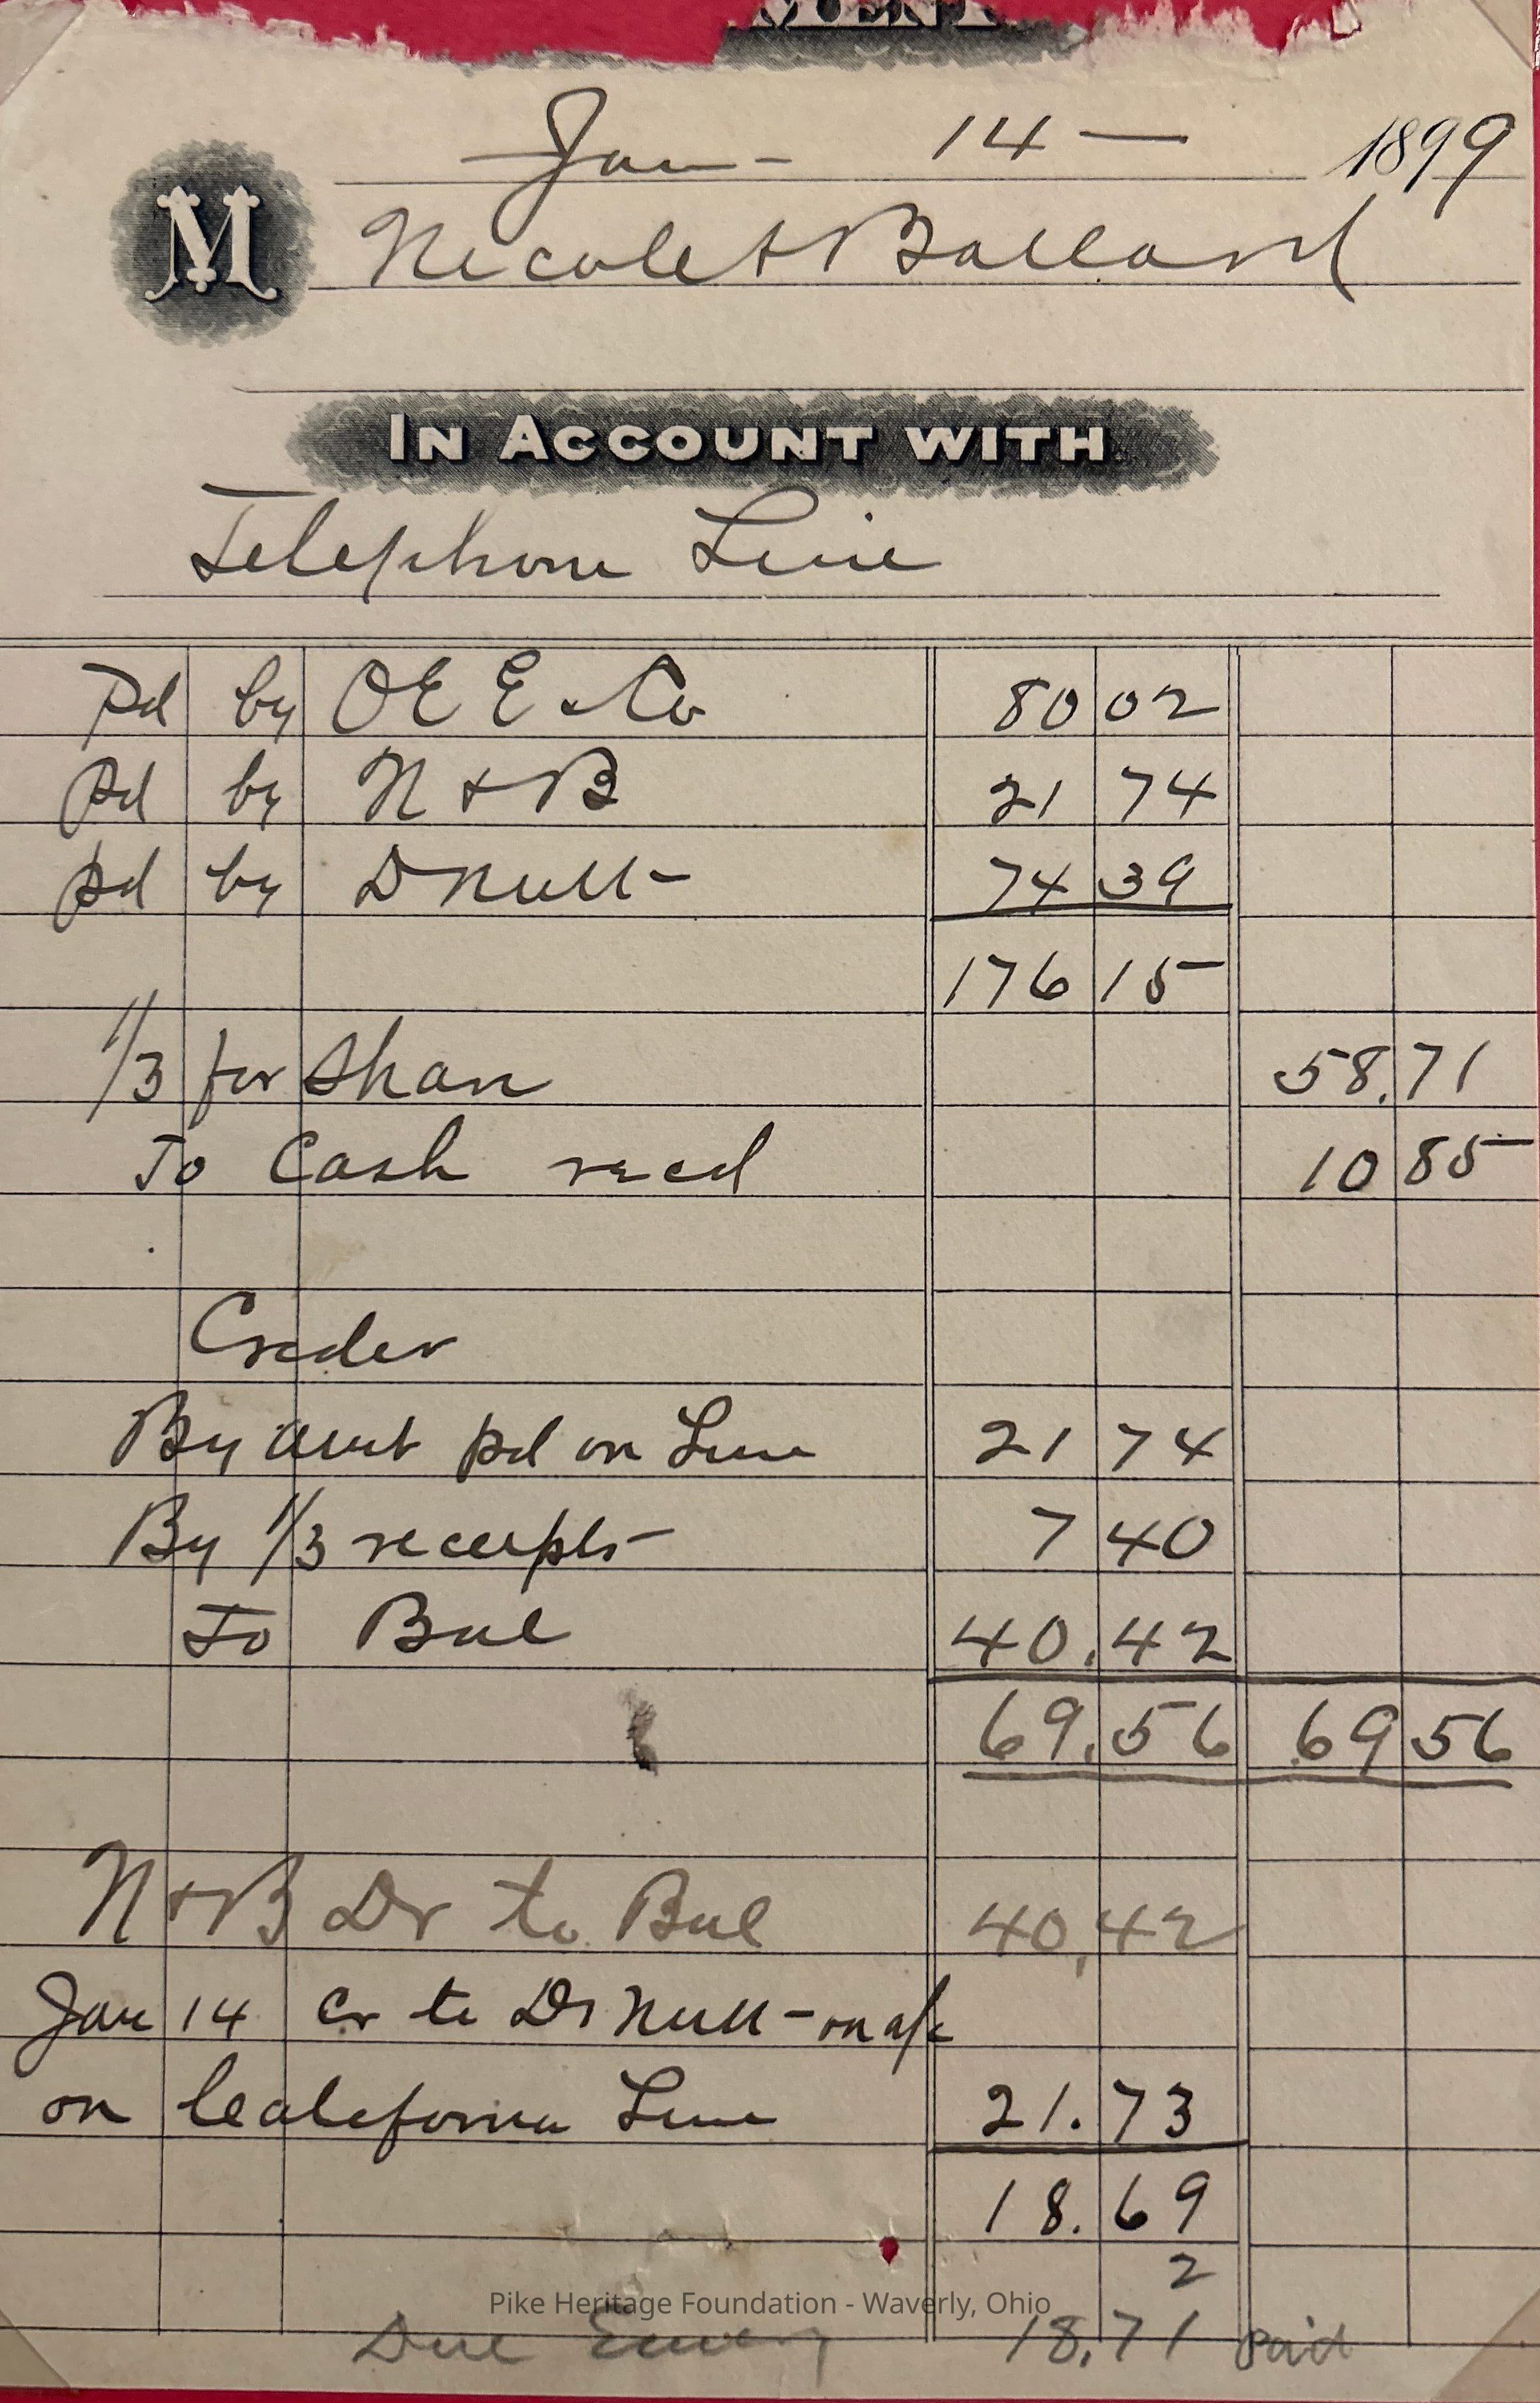 MENT
Jan - 14 — 1899
M Nicole & Balland
IN ACCOUNT WITH
Telephone Line
Pd by O E E & Co 80 02
Pd by N + B 21 74
Pd by D Null 74 39
176 15
1/3 for Share 58.71
To Cash recd 10 85
Creder
By amt pd on Line 21 74
By 1/3 receipts 7 40
To Bal 40.42
69.56 69 56
N + B Dr to Bal 40.42
Jan 14 Cr to Dr Null - on a/c
on California Line 21.73
18.69
2
Pike Heritage Foundation - Waverly, Ohio
Due Emery 18.71 paid